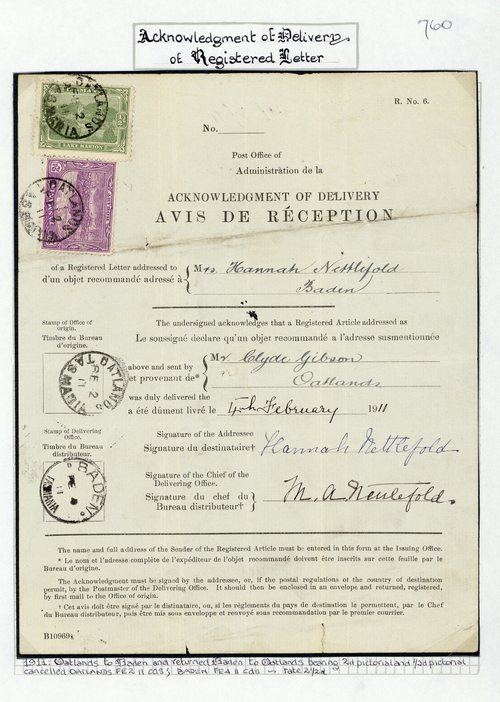 Acknowledgment of Delivery
of Registered Letter
760
R. No. 6.
No.
LAKE MARION
OATLANDS
TASMANIA
Post Office of
Administration de la
ACKNOWLEDGMENT OF DELIVERY
AVIS DE RÉCEPTION
of a Registered Letter addressed to
d'un objet recommandé adressé à
Mrs Hannah Nettlefold
Baden
Stamp of Office of
origin.
Timbre du Bureau
d'origine.
The undersigned acknowledges that a Registered Article addressed as
Le soussigné declare qu'un objet recommandé a l'adresse susmentionnée
OATLANDS
FE 2
11
TASMANIA
above and sent by
et provenant de*
Mr Clyde Gibson
Oatlands
was duly delivered the
a été dûment livré le
4th February 1911
Stamp of Delivering
Office.
Timbre du Bureau
distributeur.
BADEN
TASMANIA
Signature of the Addressee
Signature du destinataire†
Hannah Nettlefold
Signature of the Chief of the
Delivering Office.
Signature du chef du
Bureau distributeur†
M. A. Nettlefold.
The name and full address of the Sender of the Registered Article must be entered in this form at the Issuing Office.
* Le nom et l'adresse complète de l'expéditeur de l'objet recommandé doivent être inscrits sur cette feuille par le
Bureau d'origine.
The Acknowledgment must be signed by the addressee, or, if the postal regulations of the country of destination
permit, by the Postmaster of the Delivering Office. It should then be enclosed in an envelope and returned, registered,
by first mail to the Office of origin.
† Cet avis doit être signé par le destinataire, ou, si les règlements du pays de destination le permettent, par le Chef
du Bureau distributeur, puis être mis sous enveloppe et renvoyé sous recommandation par le premier courrier.
B10969
1911: Oatlands to Baden and returned Baden to Oatlands bearing 2d pictorial and ½d pictorial
cancelled OATLANDS FE 2 11 cds; BADEN FE 4 11 cds — rate 2½d